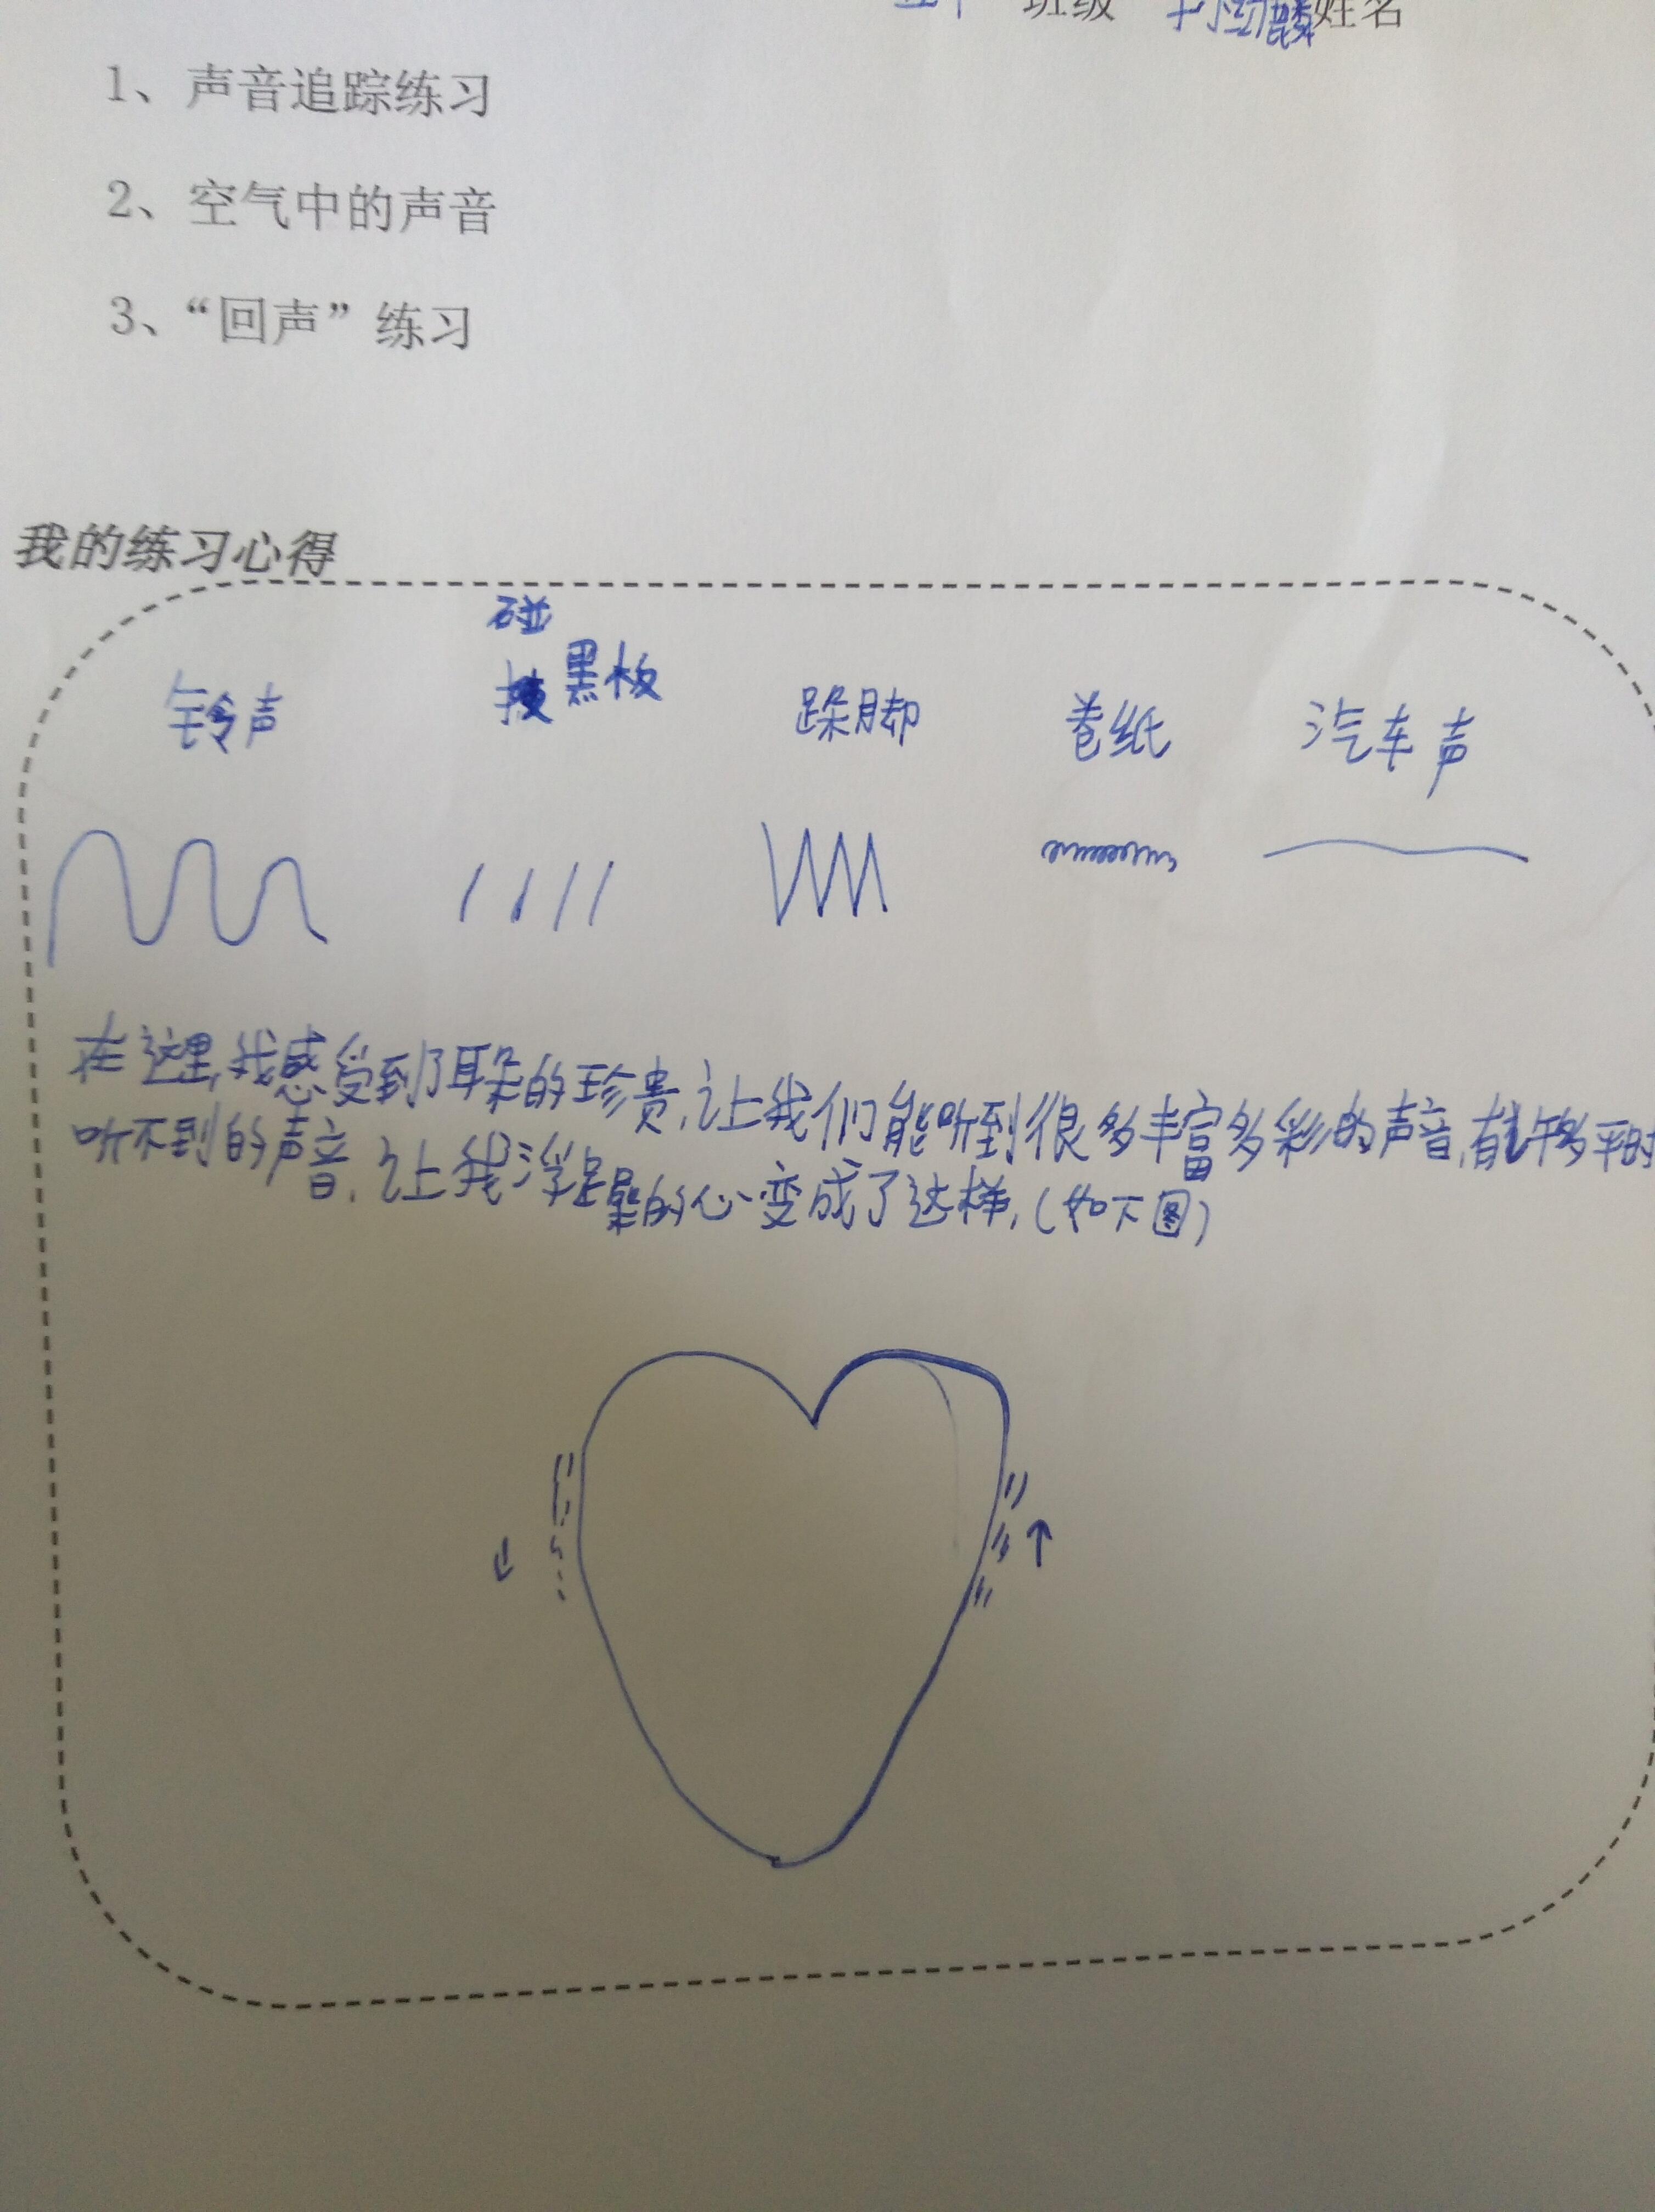 班级 姓名
1、声音追踪练习
2、空气中的声音
3、“回声”练习
我的练习心得
碰
铃声 黑板 跺脚 卷纸 汽车声
在这里,我感受到了耳朵的珍贵,让我们能听到很多丰富多彩的声音,有许多平时
听不到的声音,让我浮躁的心变成了这样,(如下图)